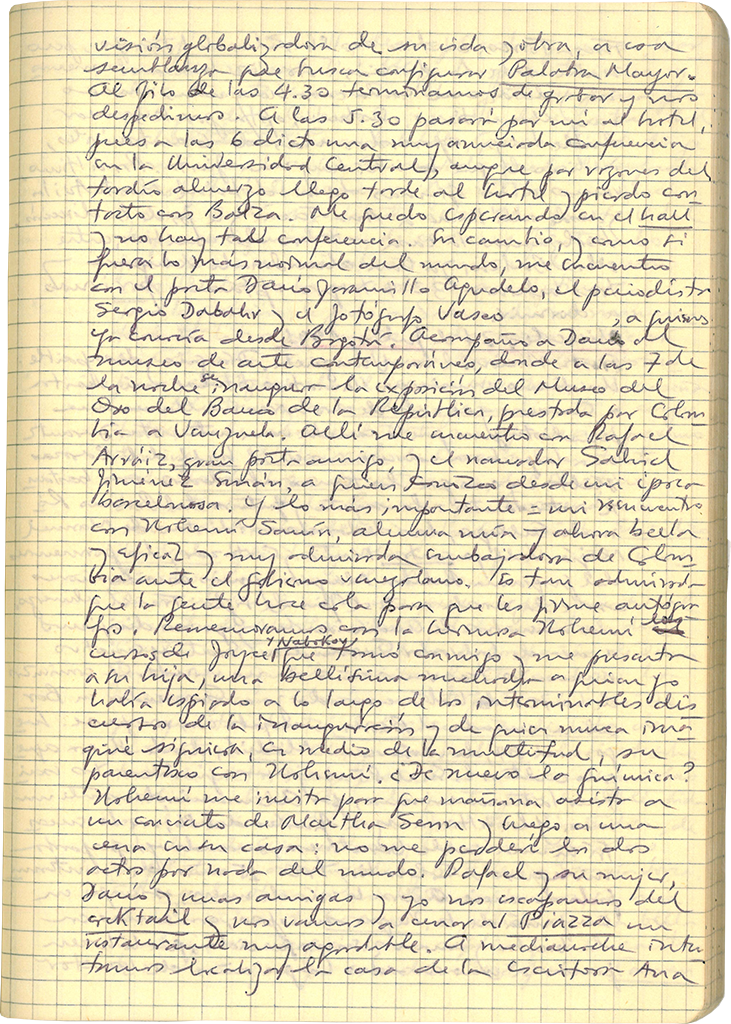 visión globalizadora de su vida y obra, a esa
semblanza que busca configurar Palabra Mayor.
Al filo de las 4.30 terminamos de grabar y nos
despedimos. A las 5.30 pasará por mí al hotel,
pues a las 6 dicto una muy anunciada conferencia
en la Universidad Central, aunque por razones del
tardío almuerzo llego tarde al hotel y pierdo con-
tacto con Balza. Me quedo esperando en el hall
y no hay tal conferencia. En cambio, y como si
fuera lo más normal del mundo, me encuentro
con el poeta Darío Jaramillo Agudelo, el periodista
Sergio Dahbar y el fotógrafo Vasco , a quienes
ya conocía desde Bogotá. Acompaño a Darío al
museo de arte contemporáneo, donde a las 7 de
la noche se inaugura la exposición del Museo del
Oro del Banco de la República, prestada por Colom-
bia a Venezuela. Allí me encuentro con Rafael
Arráiz, gran poeta amigo, y el narrador Sabid
Jiménez Emán, a quien conozco desde mi época
barcelonesa. Y lo más importante = mi reencuentro
con Nohemí Sanín, alumna mía y ahora bella
y eficaz y muy admirada embajadora de Colom-
bia ante el gobierno venezolano. Es tan admirada
que la gente hace cola para que les firme autógra-
fos. Rememoramos con la hermosa Nohemí los
cursos de Joyce y Nabokov que tomó conmigo y me presenta
a su hija, una bellísima muchacha a quien yo
había espiado a lo largo de los interminables dis
cursos de la inauguración y de quien nunca ima-
giné siquiera, en medio de la multitud, su
parentesco con Nohemí. ¿De nuevo la química?
Nohemí me invita para que mañana asista a
un concierto de Martha Senn y luego a una
cena en su casa: no me perderé los dos
actos por nada del mundo. Rafael y su mujer,
Darío y unas amigas y yo nos escapamos del
cocktail y nos vamos a cenar al Piazza un
restaurante muy agradable. A medianoche inten
tamos localizar la casa de la escritora Ana